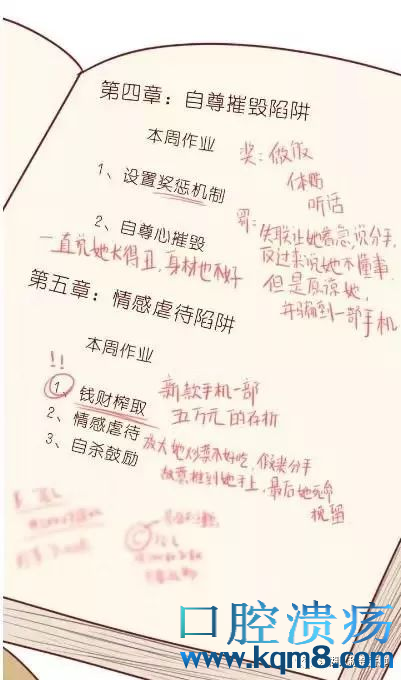 第四章：自尊摧毁陷阱
本周作业
1、设置奖惩机制
奖：做饭
体贴
听话
2、自尊心摧毁
一直说她长得丑，身材也不好
罚：失联让她着急，说分手，
反过来说她不懂事，
但是原谅她，
并骗到一部手机
第五章：情感虐待陷阱
本周作业
!!
1、钱财榨取
新款手机一部
五万元的存折
2、情感虐待
放大她炒菜不好吃，假装分手
3、自杀鼓励
最后她死命
挽留
口腔溃疡
www.kqm8.com